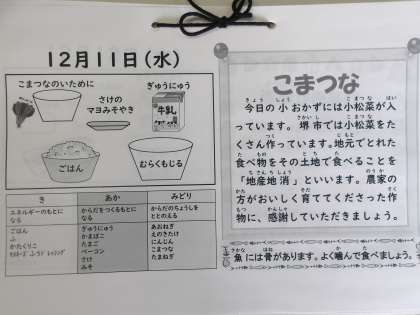 12月11日(水)
こまつなのいために
さけの
マヨみそやき
ぎゅうにゅう
牛乳
ごはん
むらくもじる
き
あか
みどり
エネルギーのもとに
なる
からだをつくるもとに
なる
からだのちょうしを
ととのえる
ごはん
ふ
かたくりこ
ぎゅうにゅう
かまぼこ
たまご
ベーコン
さけ
みそ
あおねぎ
えのきたけ
にんじん
こまつな
たまねぎ
こまつな
今日の小おかずには小松菜が入
っています。堺市では小松菜をた
くさん作っています。地元でとれた
食べ物をその土地で食べることを
「地産地消」といいます。農家の
方がおいしく育ててくださった作
物に、感謝していただきましょう。
魚には骨があります。よく噛んで食べましょう。